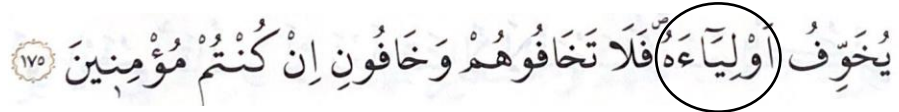 يُخَوِّفُ اَوْلِيَٓاءَهُ ۖ فَلَا تَخَافُوهُمْ وَخَافُونِ اِنْ كُنْتُمْ مُؤْمِنِينَ ﴿١٧٥﴾